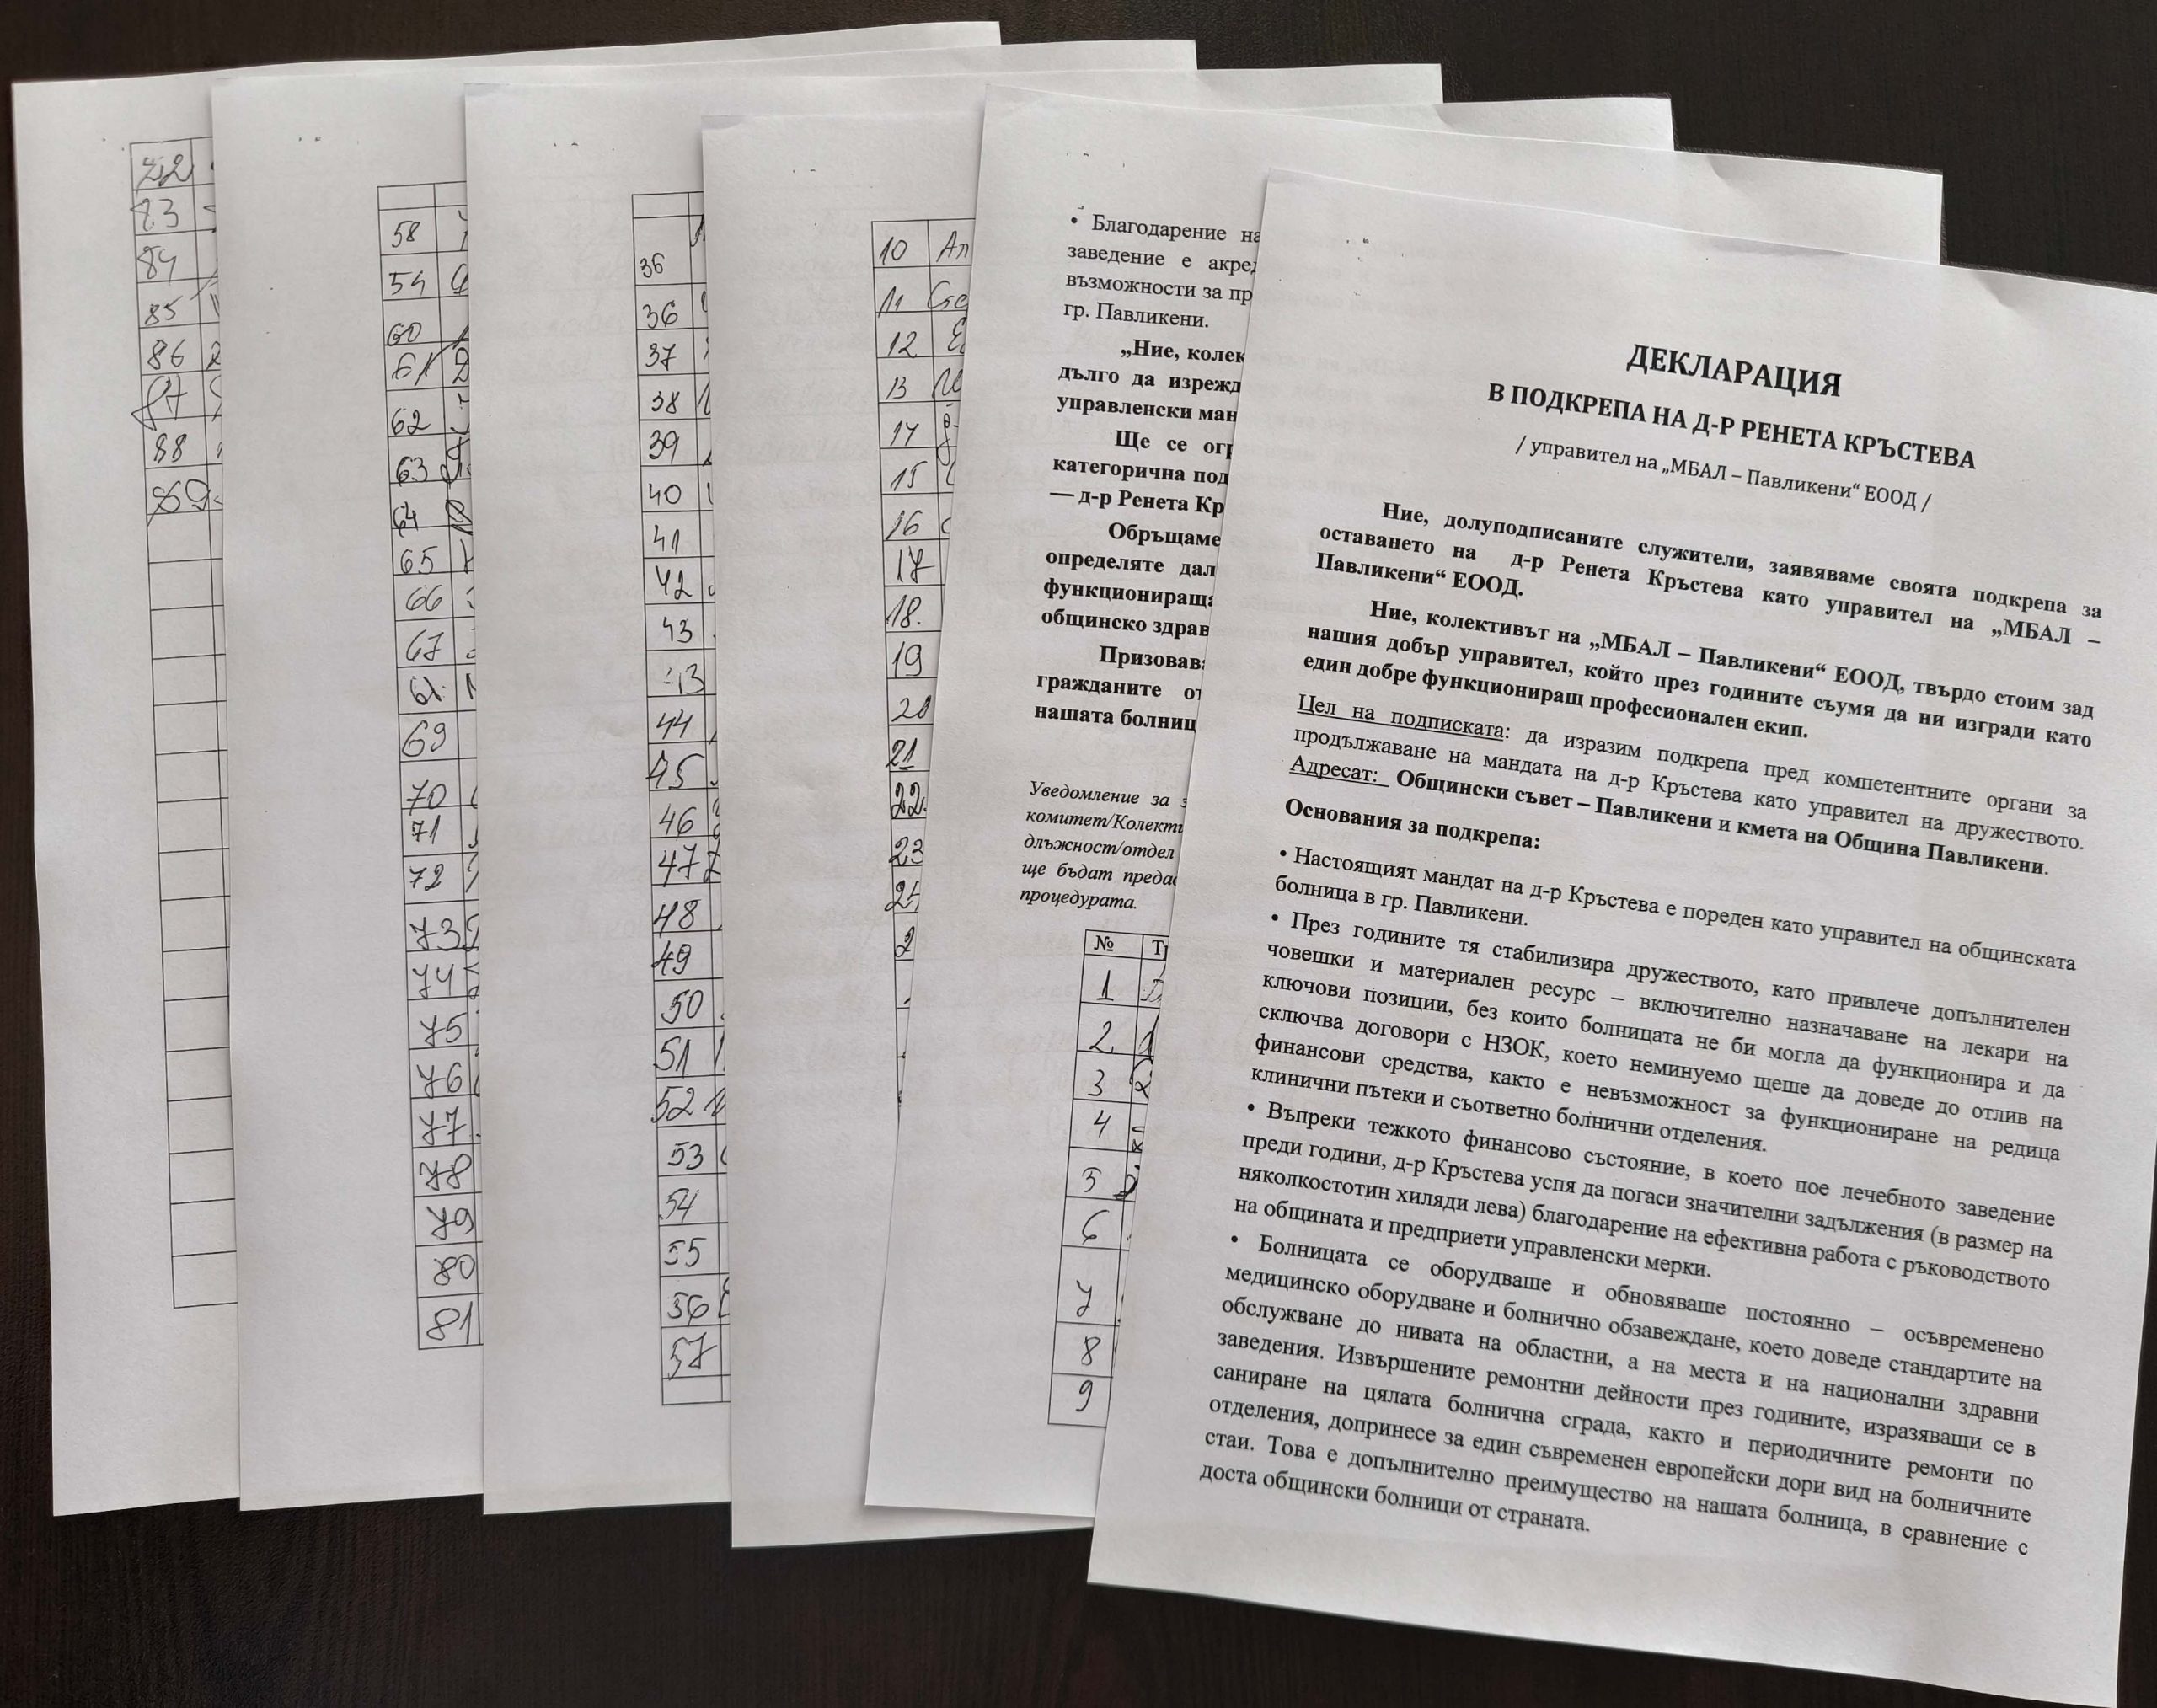 ДЕКЛАРАЦИЯ
В ПОДКРЕПА НА Д-Р РЕНЕТА КРЪСТЕВА
/ управител на „МБАЛ – Павликени“ ЕООД /
Ние, долуподписаните служители, заявяваме своята подкрепа за
оставането на д-р Ренета Кръстева като управител на „МБАЛ –
Павликени“ ЕООД.
Ние, колективът на „МБАЛ – Павликени“ ЕООД, твърдо стоим зад
нашия добър управител, който през годините съумя да ни изгради като
един добре функциониращ професионален екип.
Цел на подписката: да изразим подкрепа пред компетентните органи за
продължаване на мандата на д-р Кръстева като управител на дружеството.
Адресат: Общински съвет – Павликени и кмета на Община Павликени.
Основания за подкрепа:
• Настоящият мандат на д-р Кръстева е пореден като управител на общинската
болница в гр. Павликени.
• През годините тя стабилизира дружеството, като привлече допълнителен
човешки и материален ресурс – включително назначаване на лекари на
ключови позиции, без които болницата не би могла да функционира и да
сключва договори с НЗОК, което неминуемо щеше да доведе до отлив на
финансови средства, както е невъзможност за функциониране на редица
клинични пътеки и съответно болнични отделения.
• Въпреки тежкото финансово състояние, в което пое лечебното заведение
преди години, д-р Кръстева успя да погаси значителни задължения (в размер на
няколкостотин хиляди лева) благодарение на ефективна работа с ръководството
на общината и предприети управленски мерки.
• Болницата се оборудваше и обновяваше постоянно – осъвременено
медицинско оборудване и болнично обзавеждане, което доведе стандартите на
обслужване до нивата на областни, а на места и на национални здравни
заведения. Извършените ремонтни дейности през годините, изразяващи се в
саниране на цялата болнична сграда, както и периодичните ремонти по
отделения, допринесе за един съвременен европейски дори вид на болничните
стаи. Това е допълнително преимущество на нашата болница, в сравнение с
доста общински болници от страната.
• Благодарение на
заведение е акред
възможности за пр
гр. Павликени.
„Ние, колек
дълго да изрежд
управленски ман
Ще се огр
категорична под
— д-р Ренета Кр
Обръщаме
определяте дал
функционираща
общинско здрав
Призовав
гражданите от
нашата болниц
Уведомление за з
комитет/Колекти
длъжност/отдел
ще бъдат преда
процедурата.
№
1
2
3
4
5
6
7
8
9
10 Ал
11 Сте
12
13
14
15
16
17
18.
19
20
21
22.
23
24
2
36
36
37
38
39
40
41
42
43
43
44
45
46
47
48
49
50
51
52
53
54
55
56
57
58
59
60
61
62
63
64
65
66
67
68
69
70
71
72
73
74
75
76
77
78
79
80
81
83
84
85
86
87
88
89